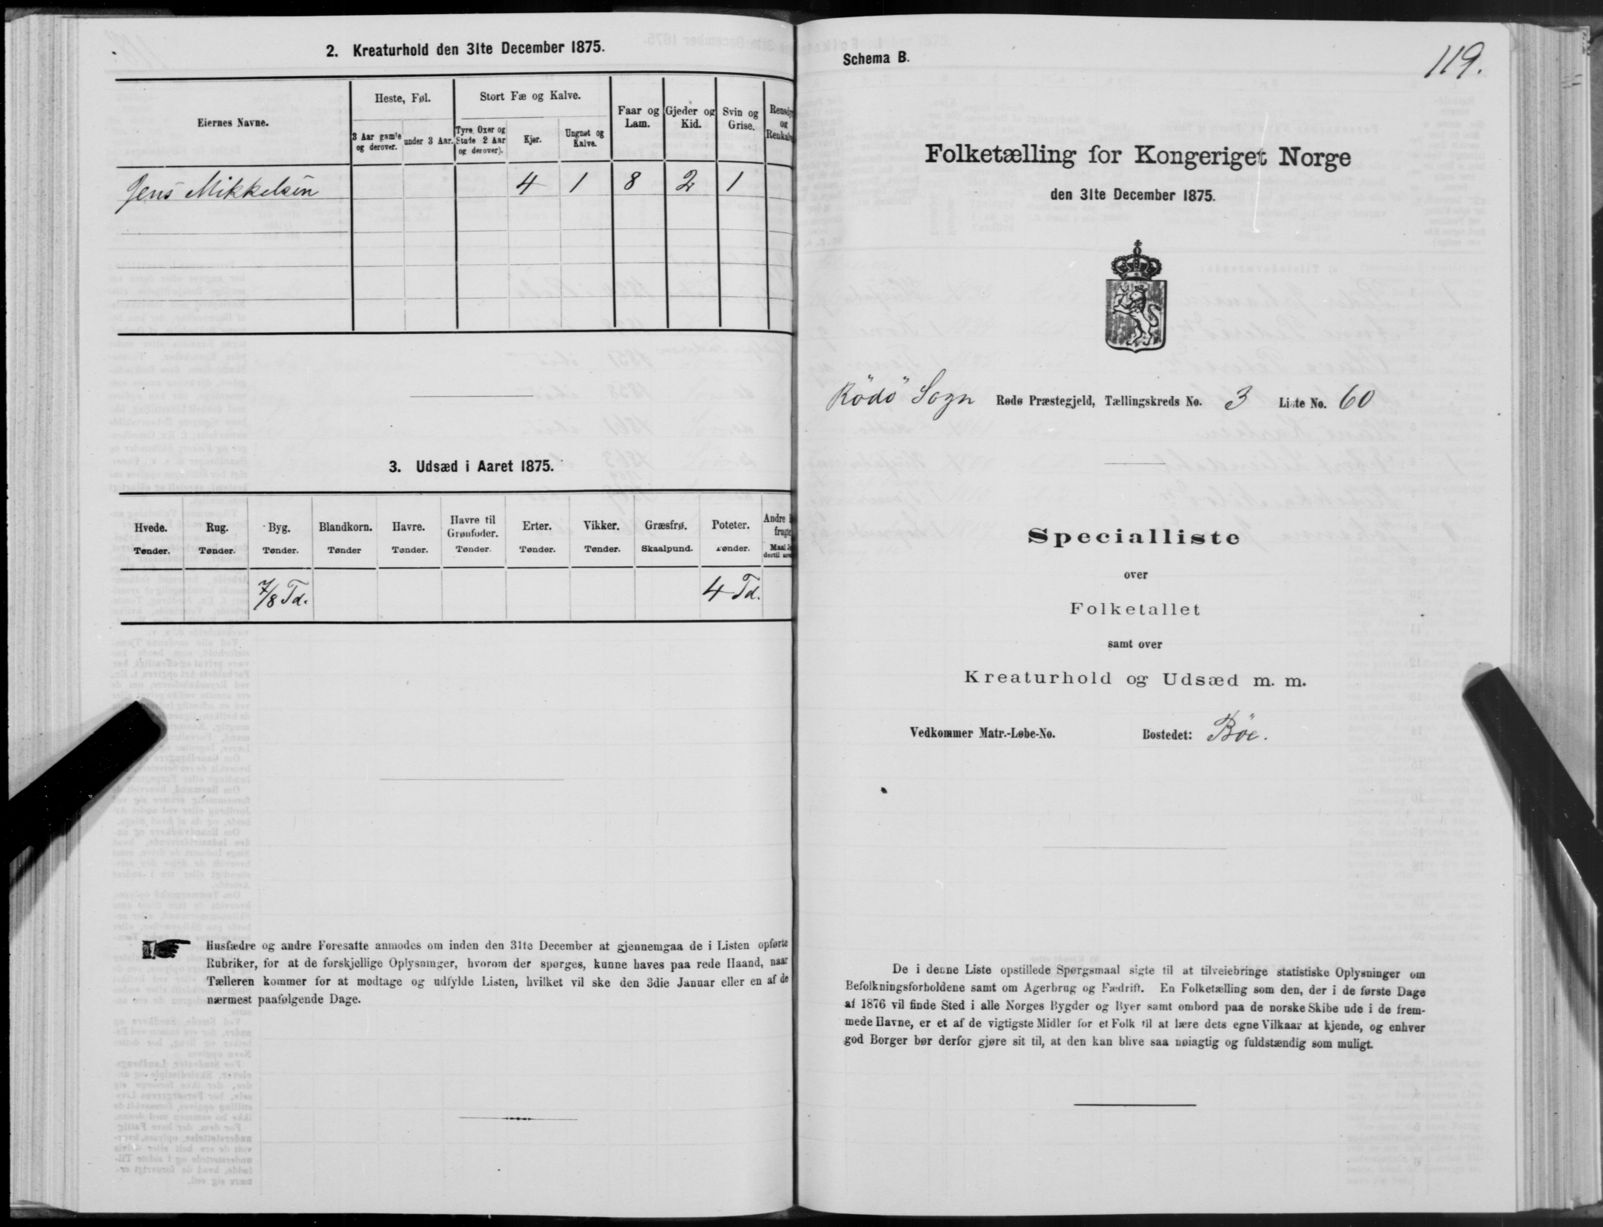 2. Kreaturhold den 31te December 1875.
Eiernes Navne.
Heste, Føl.
Stort Fæ og Kalve.
Faar og Lam.
Gjeder og Kid.
Svin og Grise.
og
3 Aar gamle og derover.
under 3 Aar.
Tyre, Oxer og Stude 2 Aar og derover).
Kjør.
Ungnøt og Kalve.
Jens Mikkelsen 4 1 8 2 1
3. Udsæd i Aaret 1875.
Hvede. Rug. Byg. Blandkorn. Havre. Havre til Grønfoder. Erter. Vikker. Græsfrø. Poteter. Andre
Tønder. Tønder. Tønder. Tønder Tønder. Tønder. Tønder. Tønder. Skaalpund. Tønder.
7/8 Td. 4 Td.
Husfædre og andre Foresatte anmodes om inden den 31te December at gjennemgaa de i Listen opførte
Rubriker, for at de forskjellige Oplysninger, hvorom der spørges, kunne haves paa rede Haand, naar
Tælleren kommer for at modtage og udfylde Listen, hvilket vil ske den 3die Januar eller en af de
nærmest paafølgende Dage.
Schema B.
119.
Folketælling for Kongeriget Norge
den 31te December 1875.
Rödö Sogn Rødø Præstegjeld, Tællingskreds No. 3 Liste No. 60
Specialliste
over
Folketallet
samt over
Kreaturhold og Udsæd m. m.
Vedkommer Matr.-Løbe-No. Bostedet: Böe.
De i denne Liste opstillede Spørgsmaal sigte til at tilveiebringe statistiske Oplysninger om
Befolkningsforholdene samt om Agerbrug og Fædrift. En Folketælling som den, der i de første Dage
af 1876 vil finde Sted i alle Norges Bygder og Byer samt ombord paa de norske Skibe ude i de frem-
mede Havne, er et af de vigtigste Midler for et Folk til at lære dets egne Vilkaar at kjende, og enhver
god Borger bør derfor gjøre sit til, at den kan blive saa nøiagtig og fuldstændig som muligt.